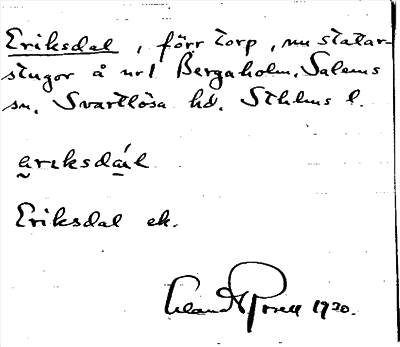 Eriksdal, förr torp, nu statar-
stugor å nr 1 Bergaholm, Salems
sn, Svartlösa hd. Sthlms l.
ariksdál
Eriksdal ek.
1920.